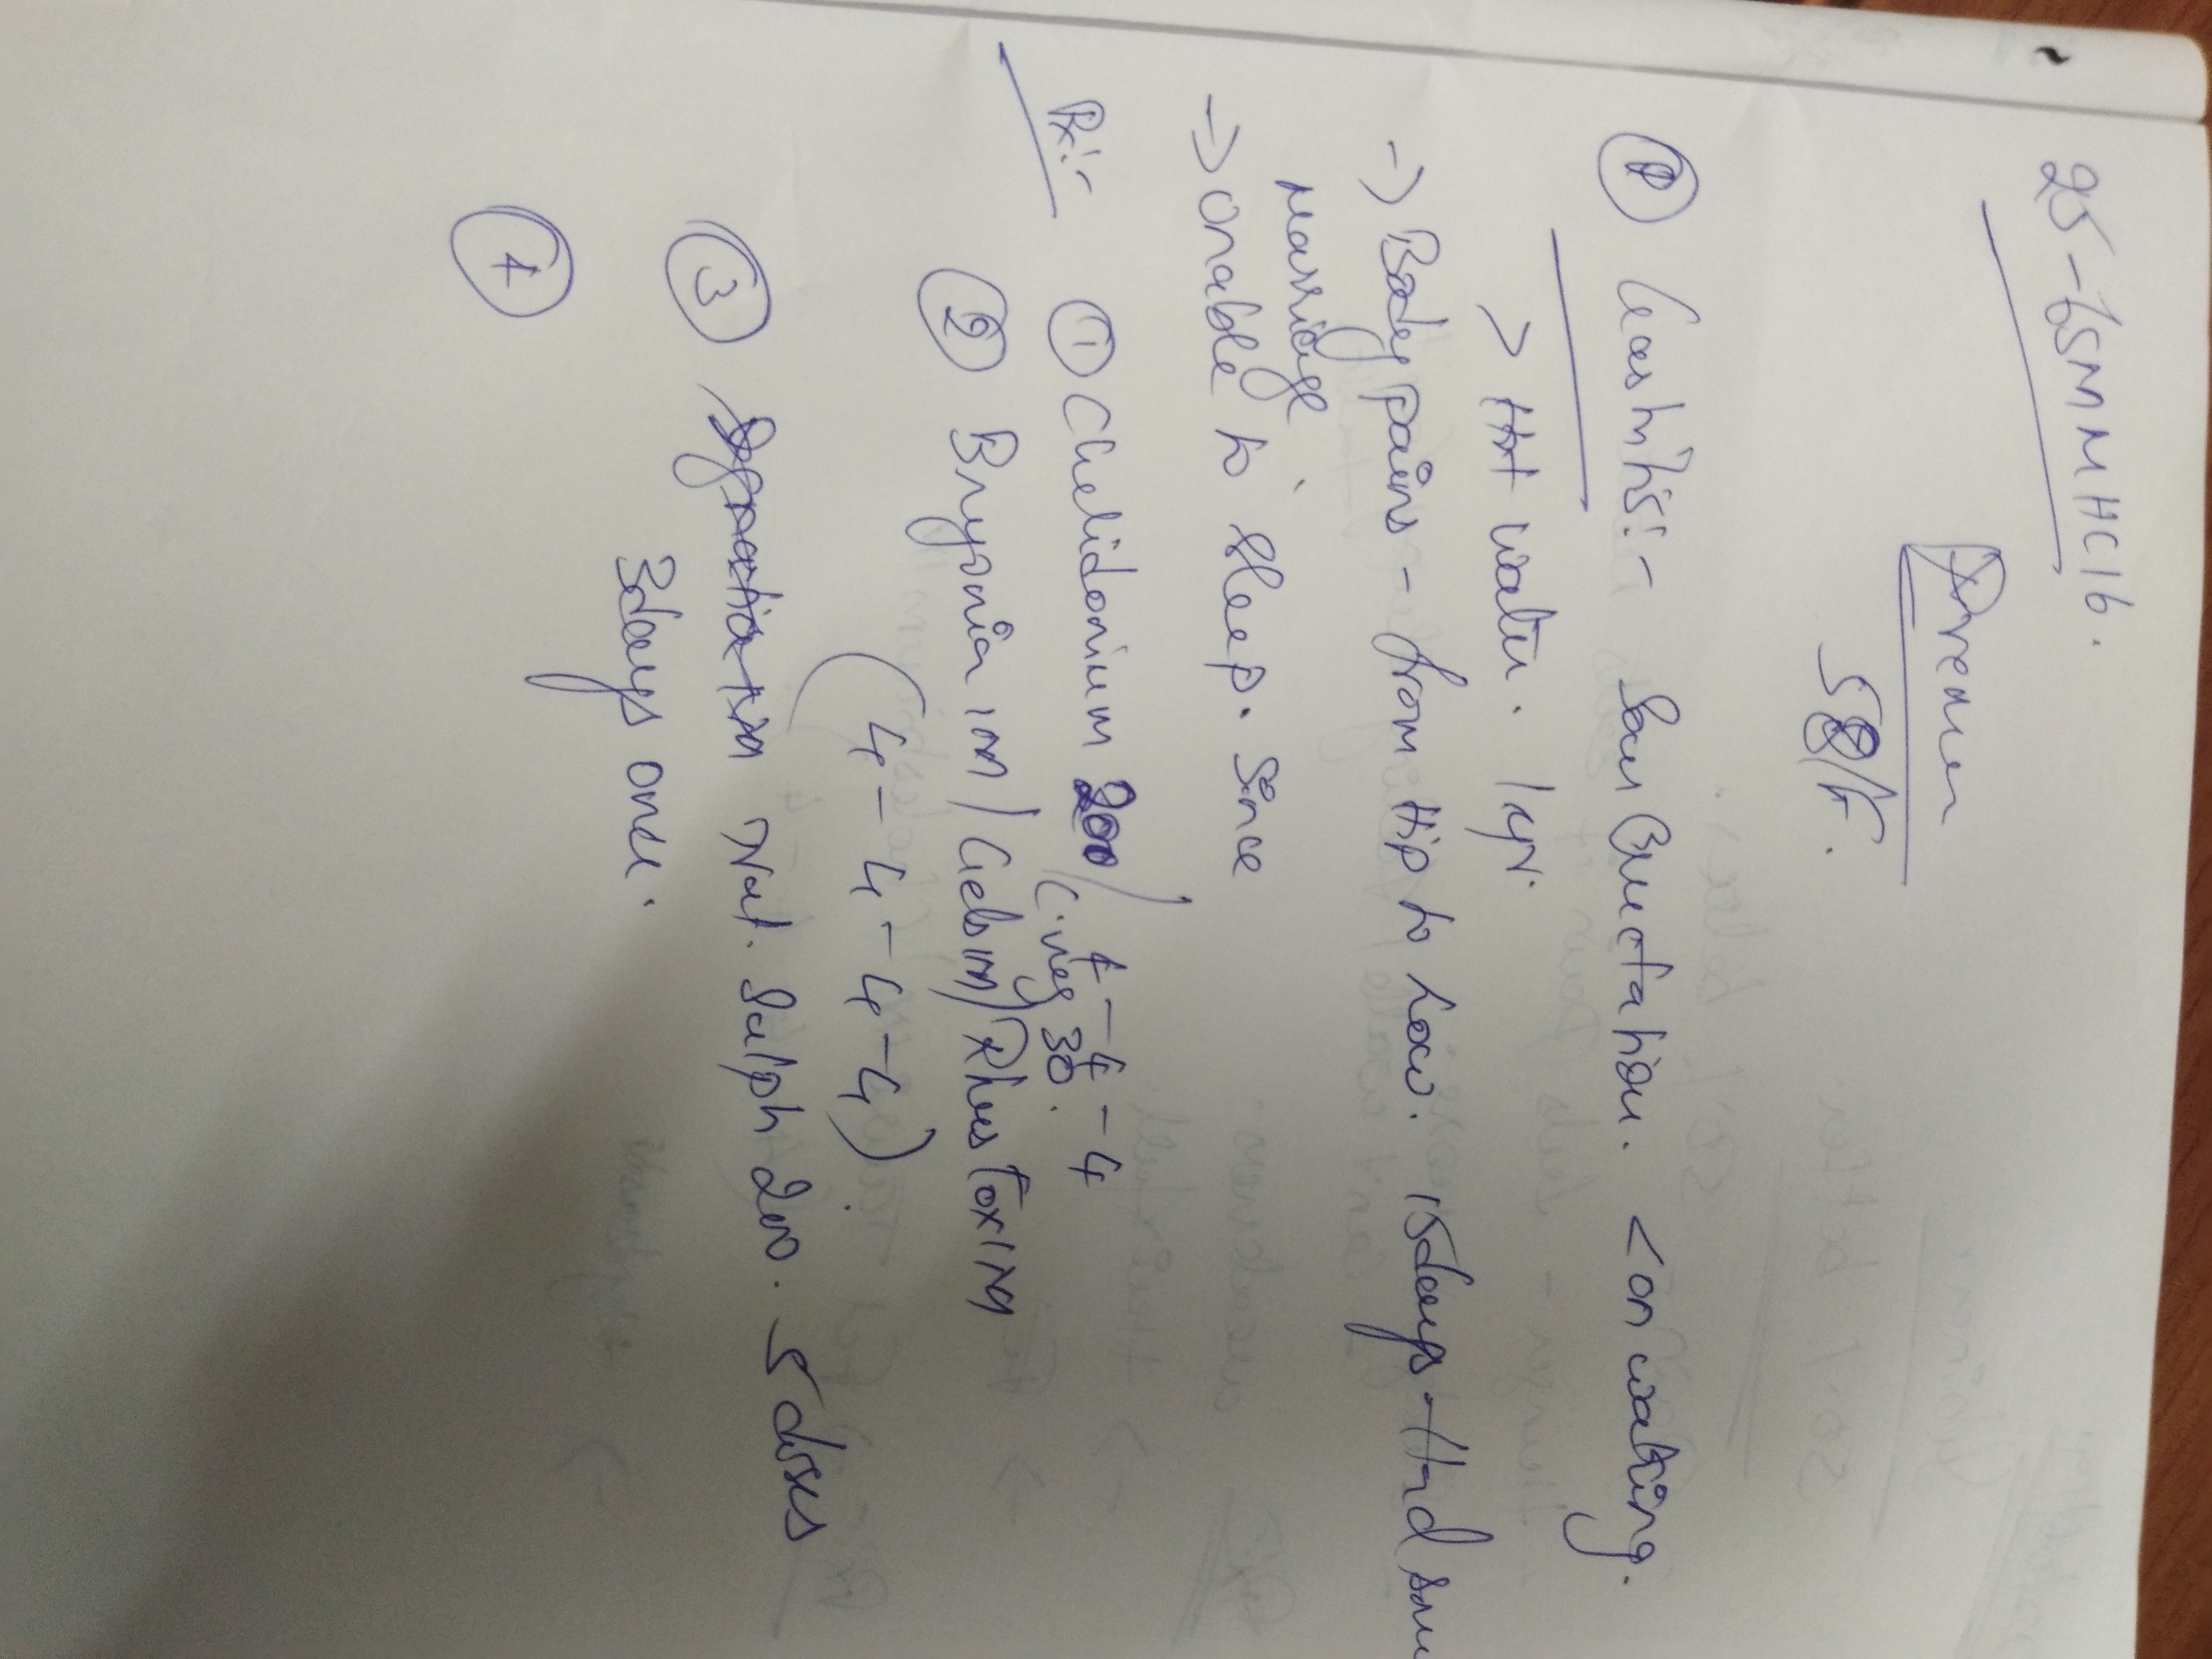 25-65MMHC16.
58/F.
① Gastritis:- Sour Eructation. < on walking.
> Hot water. 1yr.
-> Body pains - from Hip to Low. 15days - Had son
marriage.
-> Unable to Sleep. Since
Rx:- ① Chelidonium 200/ 4-4-4
C.veg 30.
② Bryonia 1M/Gels1M/Rhus Tox1M
(4-4-4-4).
③ Nat. Sulph 200. 5 doses
3days once.
④